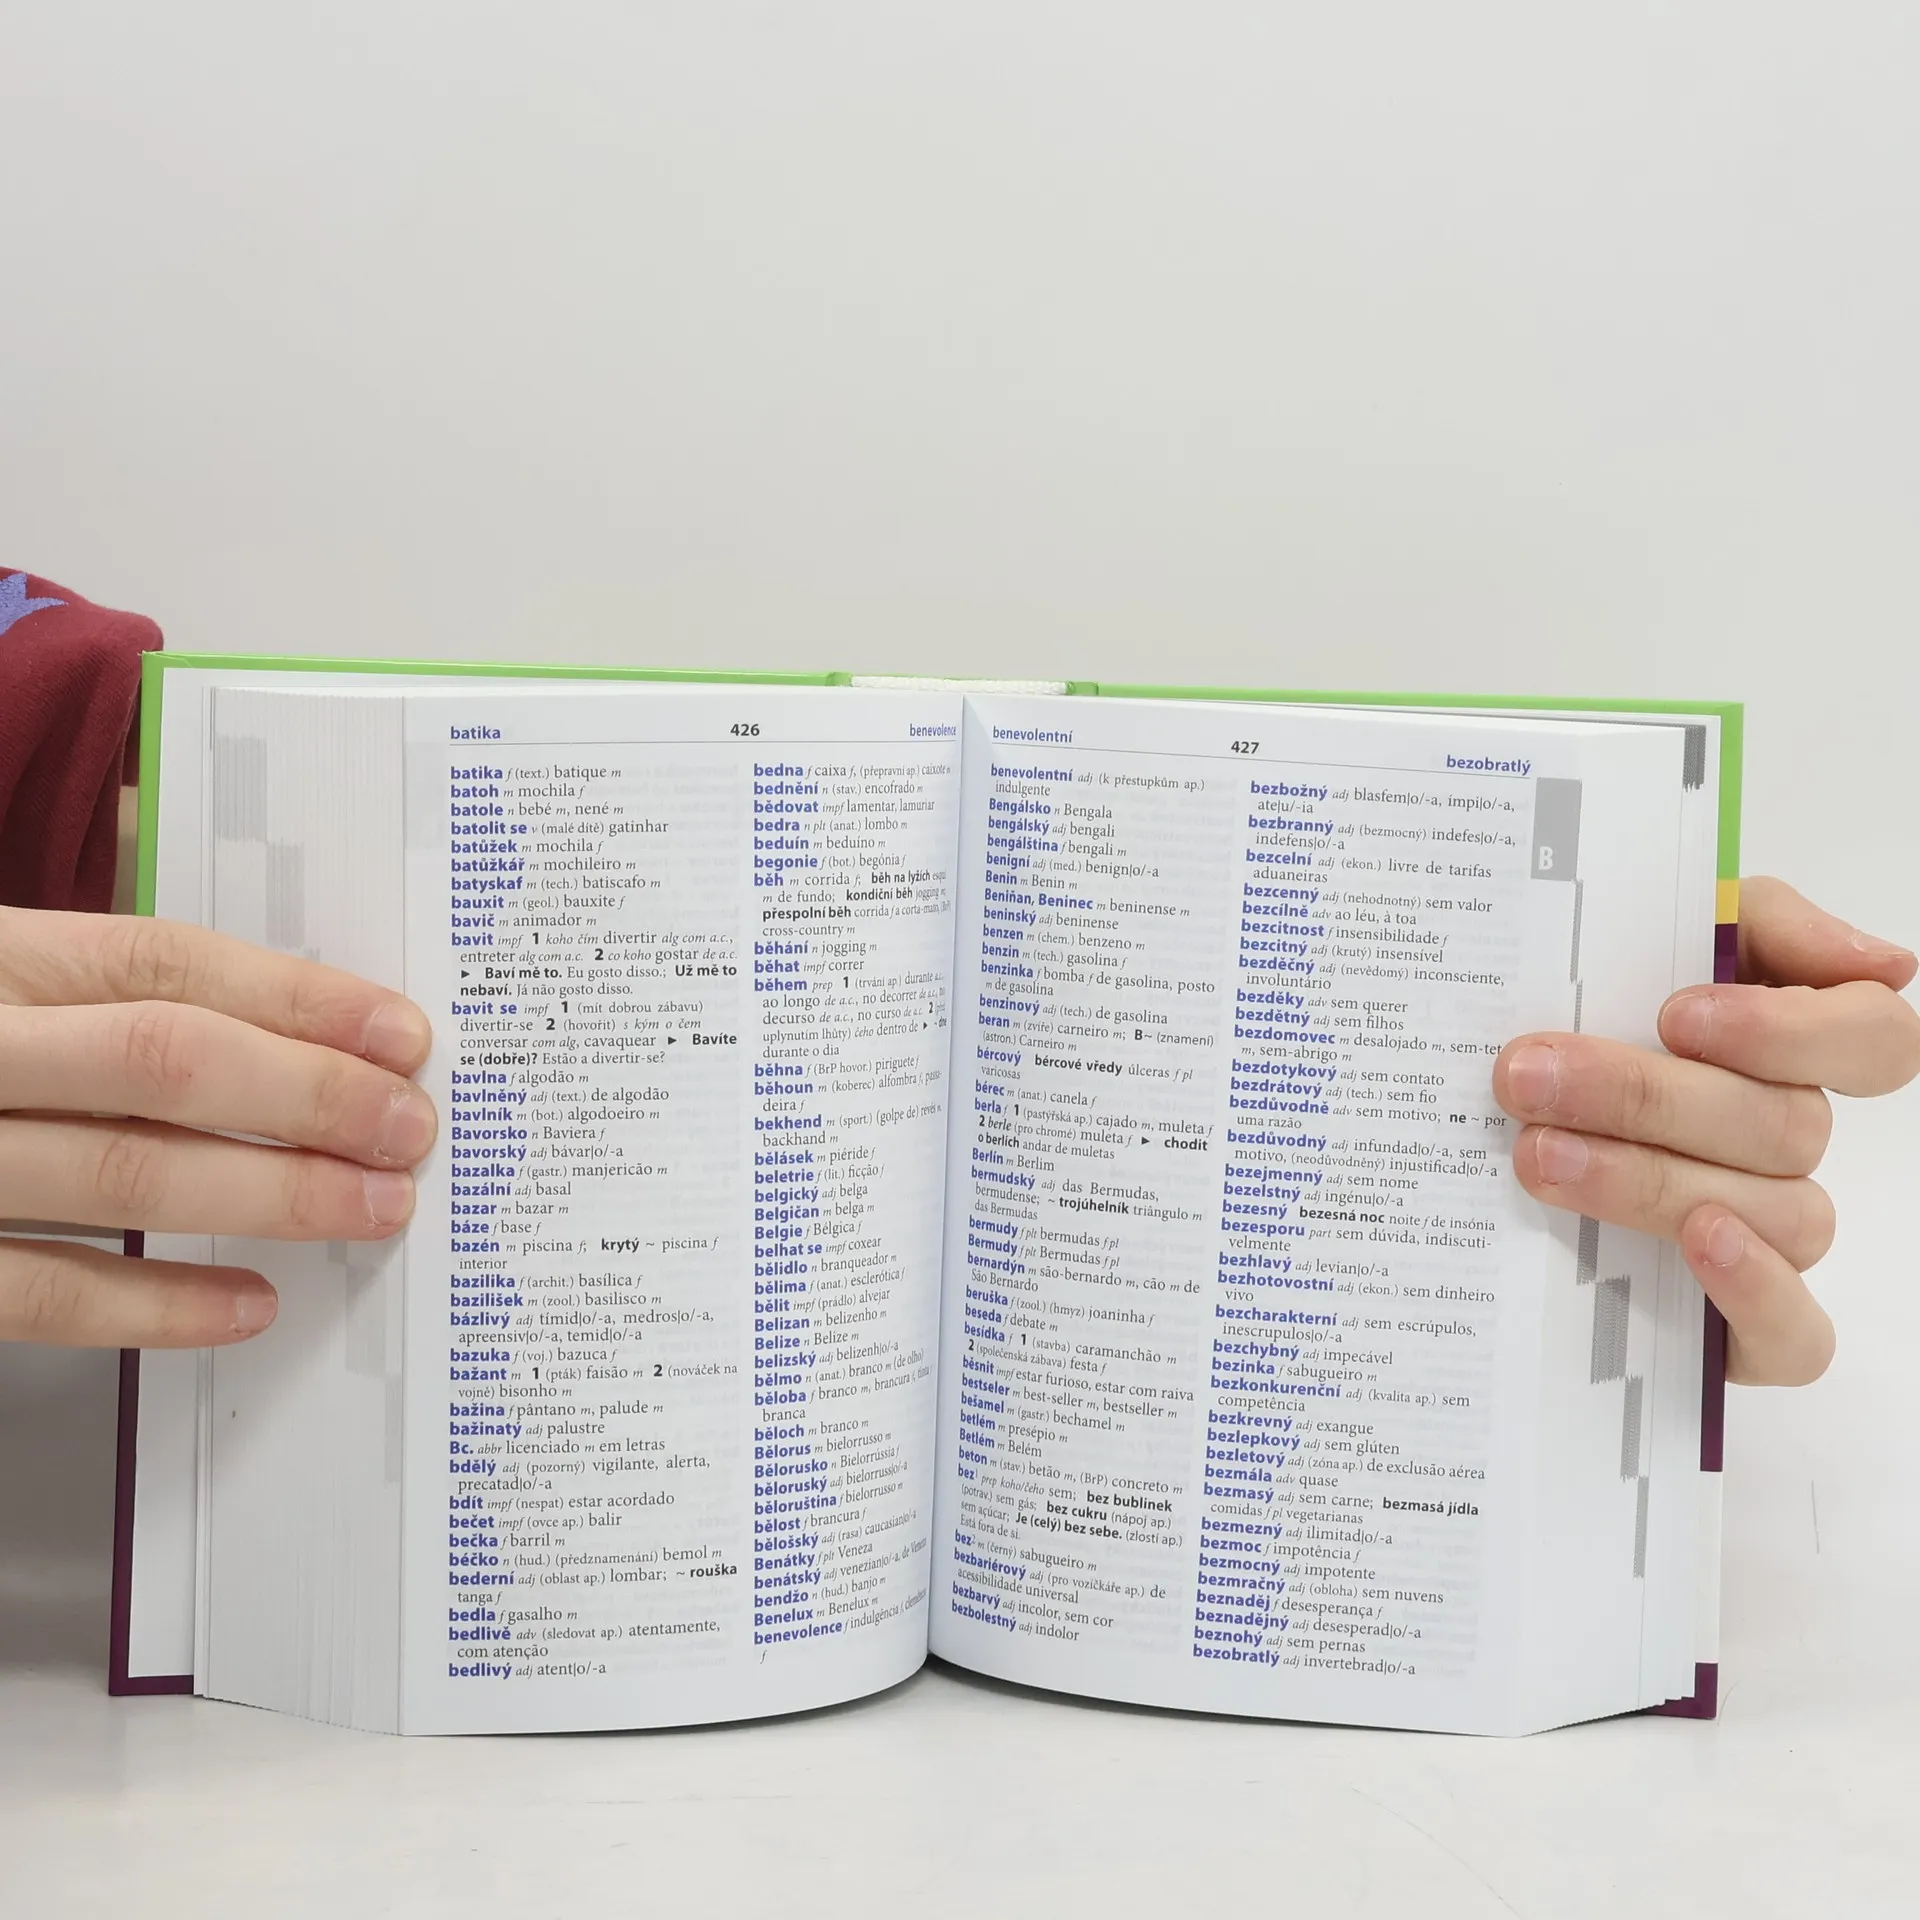 batika 426 benevolence
batika f (text.) batique m
batoh m mochila f
batole n bebé m, nené m
batolit se v (malé dítě) gatinhar
batůžek m mochila f
batůžkář m mochileiro m
batyskaf m (tech.) batiscafo m
bauxit m (geol.) bauxite f
bavič m animador m
bavit impf 1 koho čím divertir alg com a.c.,
entreter alg com a.c. 2 co koho gostar de a.c.
► Baví mě to. Eu gosto disso.; Už mě to
nebaví. Já não gosto disso.
bavit se impf 1 (mít dobrou zábavu)
divertir-se 2 (hovořit) s kým o čem
conversar com alg, cavaquear ► Bavíte
se (dobře)? Estão a divertir-se?
bavlna f algodão m
bavlněný adj (text.) de algodão
bavlník m (bot.) algodoeiro m
Bavorsko n Baviera f
bavorský adj bávar|o/-a
bazalka f (gastr.) manjericão m
bazální adj basal
bazar m bazar m
báze f base f
bazén m piscina f; krytý ~ piscina f
interior
bazilika f (archit.) basílica f
bazilišek m (zool.) basilisco m
bázlivý adj tímid|o/-a, medros|o/-a,
apreensiv|o/-a, temid|o/-a
bazuka f (voj.) bazuca f
bažant m 1 (pták) faisão m 2 (nováček na
vojně) bisonho m
bažina f pântano m, palude m
bažinatý adj palustre
Bc. abbr licenciado m em letras
bdělý adj (pozorný) vigilante, alerta,
precatad|o/-a
bdít impf (nespat) estar acordado
bečet impf (ovce ap.) balir
bečka f barril m
béčko n (hud.) (předznamenání) bemol m
bederní adj (oblast ap.) lombar; ~ rouška
tanga f
bedla f gasalho m
bedlivě adv (sledovat ap.) atentamente,
com atenção
bedlivý adj atent|o/-a
bedna f caixa f, (přepravní ap.) caixote m
bednění n (stav.) encofrado m
bědovat impf lamentar, lamuriar
bedra n plt (anat.) lombo m
beduín m beduíno m
begonie f (bot.) begónia f
běh m corrida f; běh na lyžích esqui
m de fundo; kondiční běh jogging m;
přespolní běh corrida f a corta-mato, (BrP)
cross-country m
běhání n jogging m
běhat impf correr
během prep 1 (trvání ap.) durante a.c.,
ao longo de a.c., no decorrer de a.c., no
decurso de a.c., no curso de a.c. 2 (před
uplynutím lhůty) čeho dentro de ► ~ dne
durante o dia
běhna f (BrP hovor.) piriguete f
běhoun m (koberec) alfombra f, passa-
deira f
bekhend m (sport.) (golpe de) revés m,
backhand m
bělásek m piéride f
beletrie f (lit.) ficção f
belgický adj belga
Belgičan m belga m
Belgie f Bélgica f
belhat se impf coxear
bělidlo n branqueador m
bělima f (anat.) esclerótica f
bělit impf (prádlo) alvejar
Belizan m belizenho m
Belize n Belize m
belizský adj belizenh|o/-a
bělmo n (anat.) branco m (de olho)
běloba f branco m, brancura f, tinta f
branca
běloch m branco m
Bělorus m bielorrusso m
Bělorusko n Bielorrússia f
běloruský adj bielorruss|o/-a
běloruština f bielorrusso m
bělost f brancura f
bělošský adj (rasa) caucasian|o/-a
Benátky f plt Veneza
benátský adj venezian|o/-a, de Veneza
bendžo n (hud.) banjo m
Benelux m Benelux m
benevolence f indulgência f, clemência
f
benevolentní 427 bezobratlý
benevolentní adj (k přestupkům ap.)
indulgente
Bengálsko n Bengala
bengálský adj bengali
bengálština f bengali m
benigní adj (med.) benign|o/-a
Benin m Benin m
Beniňan, Beninec m beninense m
beninský adj beninense
benzen m (chem.) benzeno m
benzin m (tech.) gasolina f
benzinka f bomba f de gasolina, posto
m de gasolina
benzinový adj (tech.) de gasolina
beran m (zvíře) carneiro m; B~ (znamení)
(astron.) Carneiro m
bércový bércové vředy úlceras f pl
varicosas
bérec m (anat.) canela f
berla f 1 (pastýřská ap.) cajado m, muleta f
2 berle (pro chromé) muleta f ► chodit
o berlích andar de muletas
Berlín m Berlim
bermudský adj das Bermudas,
bermudense; ~ trojúhelník triângulo m
das Bermudas
bermudy f plt bermudas f pl
Bermudy f plt Bermudas f pl
bernardýn m são-bernardo m, cão m de
São Bernardo
beruška f (zool.) (hmyz) joaninha f
beseda f debate m
besídka f 1 (stavba) caramanchão m
2 (společenská zábava) festa f
běsnit impf estar furioso, estar com raiva
bestseler m best-seller m, bestseller m
bešamel m (gastr.) bechamel m
betlém m presépio m
Betlém m Belém
beton m (stav.) betão m, (BrP) concreto m
bez¹ prep koho/čeho sem; bez bublinek
(potrav.) sem gás; bez cukru (nápoj ap.)
sem açúcar; Je (celý) bez sebe. (zlostí ap.)
Está fora de si.
bez² m (černý) sabugueiro m
bezbariérový adj (pro vozíčkáře ap.) de
acessibilidade universal
bezbarvý adj incolor, sem cor
bezbolestný adj indolor
bezbožný adj blasfem|o/-a, ímpi|o/-a,
ate|u/-ia
bezbranný adj (bezmocný) indefes|o/-a,
indefens|o/-a
bezcelní adj (ekon.) livre de tarifas
aduaneiras
bezcenný adj (nehodnotný) sem valor
bezcílně adv ao léu, à toa
bezcitnost f insensibilidade f
bezcitný adj (krutý) insensível
bezděčný adj (nevědomý) inconsciente,
involuntário
bezděky adv sem querer
bezdětný adj sem filhos
bezdomovec m desalojado m, sem-tet
m, sem-abrigo m
bezdotykový adj sem contato
bezdrátový adj (tech.) sem fio
bezdůvodně adv sem motivo; ne ~ por
uma razão
bezdůvodný adj infundad|o/-a, sem
motivo, (neodůvodněný) injustificad|o/-a
bezejmenný adj sem nome
bezelstný adj ingénu|o/-a
bezesný bezesná noc noite f de insónia
bezesporu part sem dúvida, indiscuti-
velmente
bezhlavý adj levian|o/-a
bezhotovostní adj (ekon.) sem dinheiro
vivo
bezcharakterní adj sem escrúpulos,
inescrupulos|o/-a
bezchybný adj impecável
bezinka f sabugueiro m
bezkonkurenční adj (kvalita ap.) sem
competência
bezkrevný adj exangue
bezlepkový adj sem glúten
bezletový adj (zóna ap.) de exclusão aérea
bezmála adv quase
bezmasý adj sem carne; bezmasá jídla
comidas f pl vegetarianas
bezmezný adj ilimitad|o/-a
bezmoc f impotência f
bezmocný adj impotente
bezmračný adj (obloha) sem nuvens
beznaděj f desesperança f
beznadějný adj desesperad|o/-a
beznohý adj sem pernas
bezobratlý adj invertebrad|o/-a
B